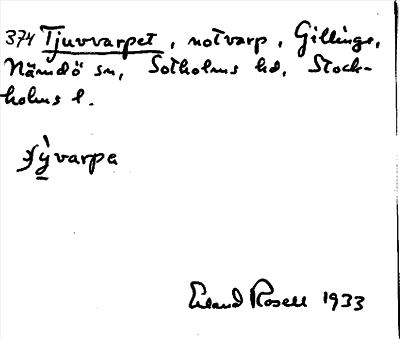 374 Tjuvvarpet, notvarp, Gillinge,
Nämdö sn, Sotholms hd, Stock-
holms l.
varpa
Erland Rosell 1933